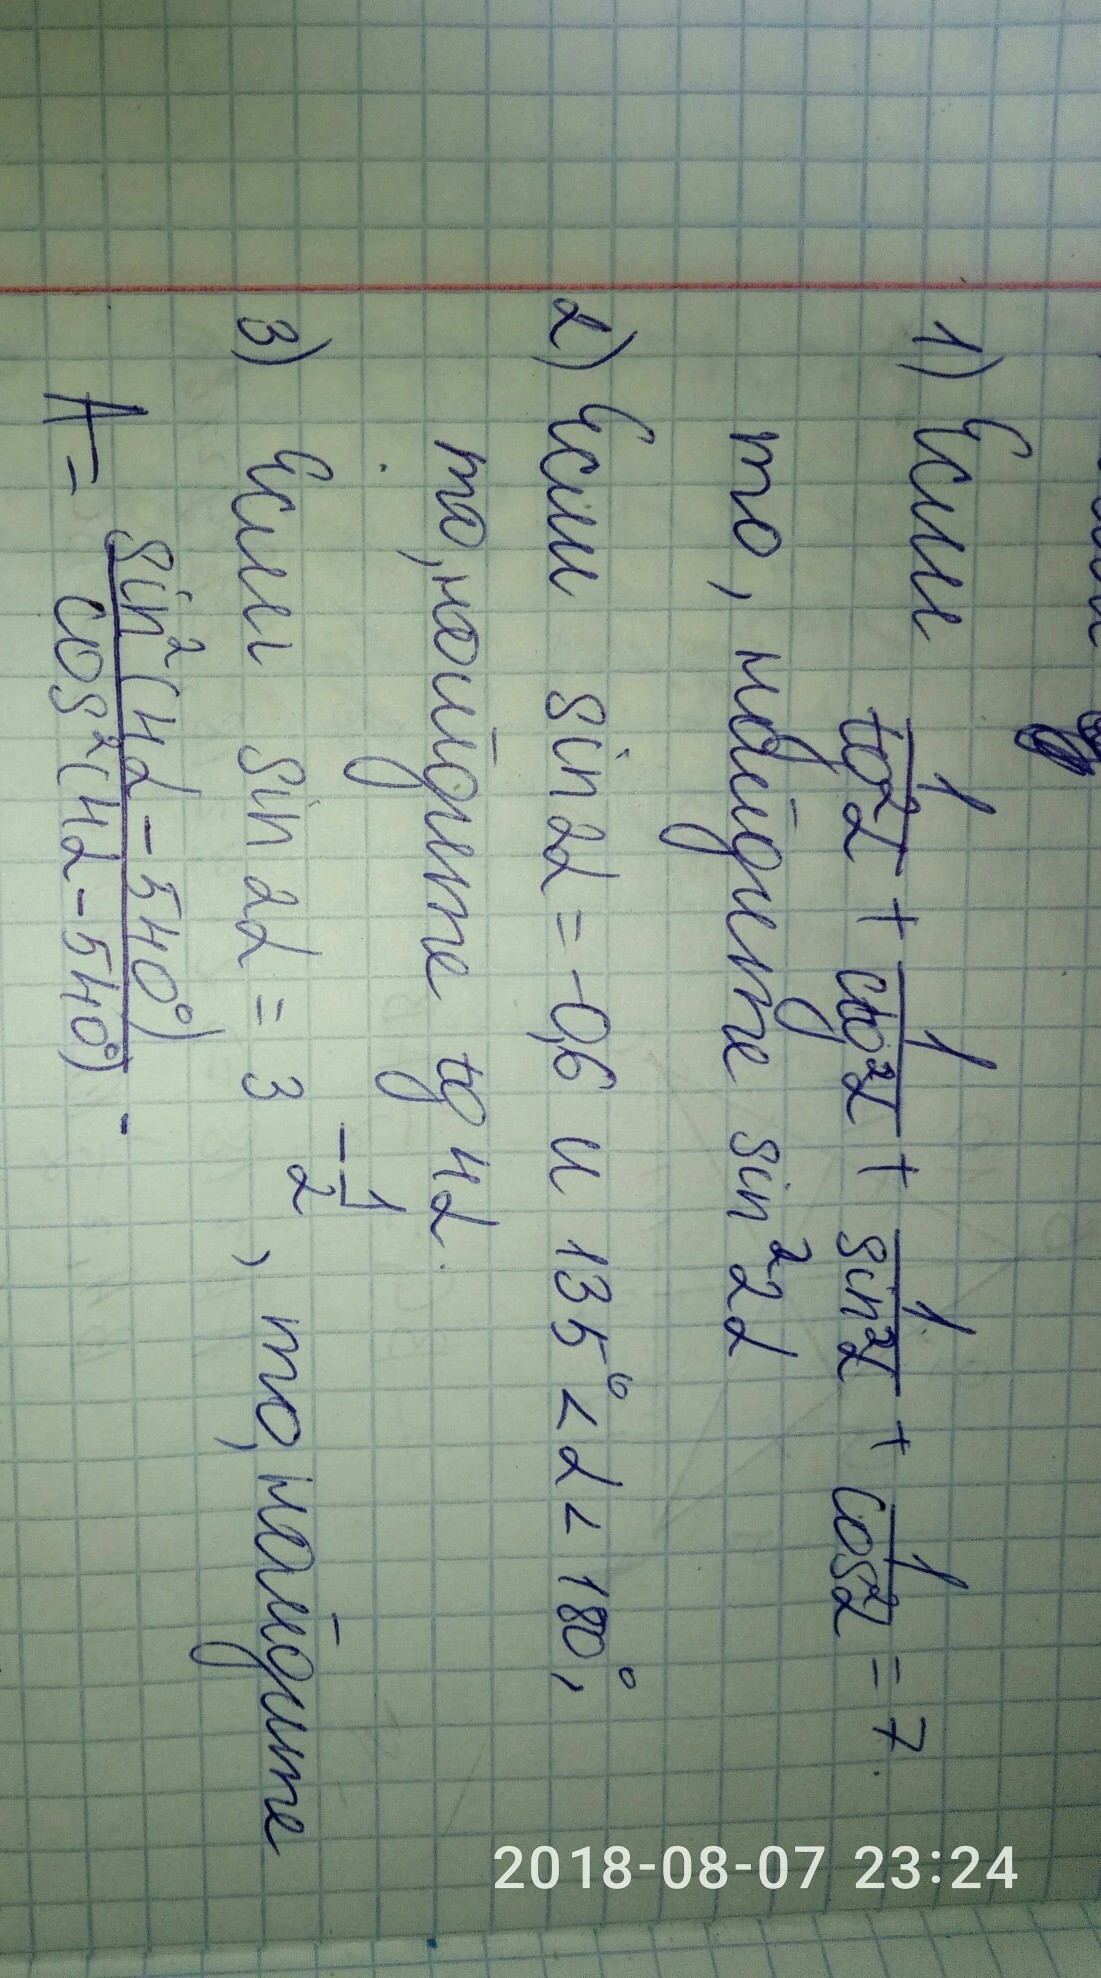 1) Если 1/tg²α + 1/ctg²α + 1/sin²α + 1/cos²α = 7.
то, найдите sin²2α
2) Если sin2α = -0,6 и 135° < α < 180°,
то, найдите tg4α.
3) Если sin2α = 3^(-1/2), то, найдите
A = sin²(4α - 540°)/cos²(4α - 540°).
2018-08-07 23:24